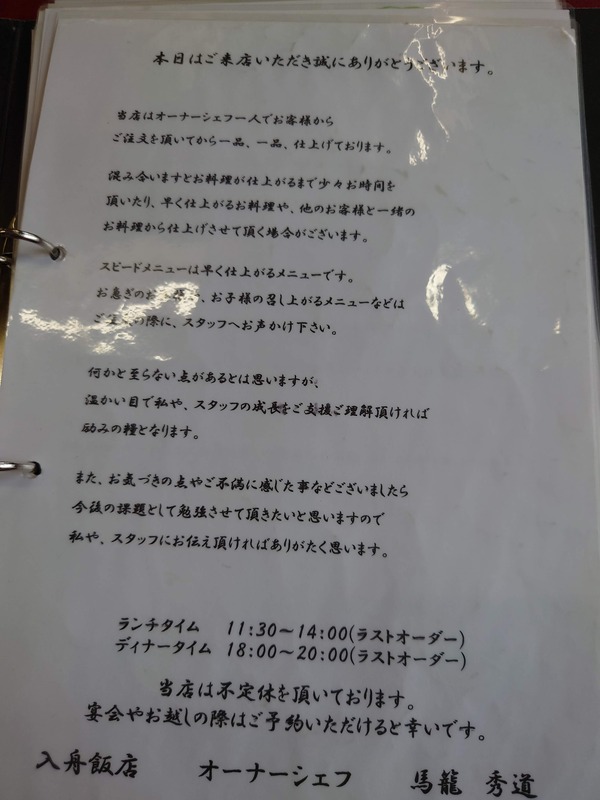 本日はご来店いただき誠にありがとうございます。
当店はオーナーシェフ一人でお客様から
ご注文を頂いてから一品、一品、仕上げております。
混み合いますとお料理が仕上がるまで少々お時間を
頂いたり、早く仕上がるお料理や、他のお客様と一緒の
お料理から仕上げさせて頂く場合がございます。
スピードメニューは早く仕上がるメニューです。
お急ぎのお、お子様の召し上がるメニューなどは
ごの際に、スタッフへお声かけ下さい。
何かと至らない点があるとは思いますが、
温かい目で私や、スタッフの成長をご支援ご理解頂ければ
励みの糧となります。
また、お気づきの点やご不満に感じた事などございましたら
今後の課題として勉強させて頂きたいと思いますので
私や、スタッフにお伝え頂ければありがたく思います。
ランチタイム 11:30～14:00(ラストオーダー)
ディナータイム 18:00～20:00(ラストオーダー)
当店は不定休を頂いております。
宴会やお越しの際はご予約いただけると幸いです。
入舟飯店 オーナーシェフ 馬龍 秀道